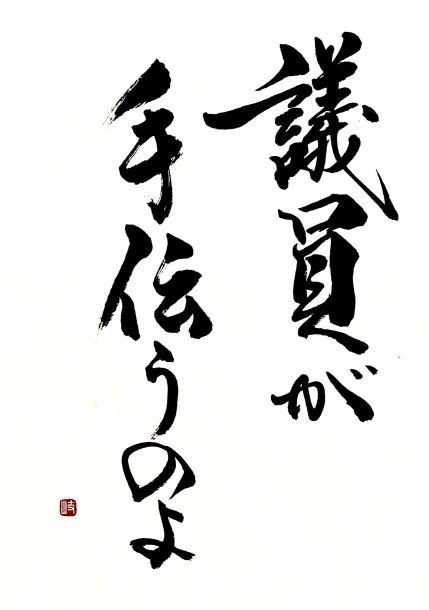 議員が
手伝うのよ